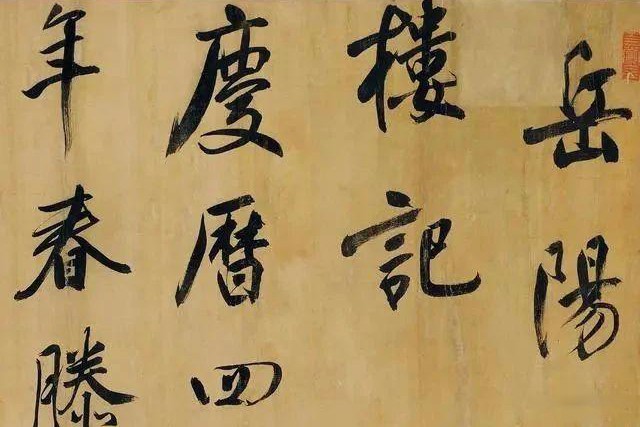 岳陽
樓記
慶曆四
年春滕